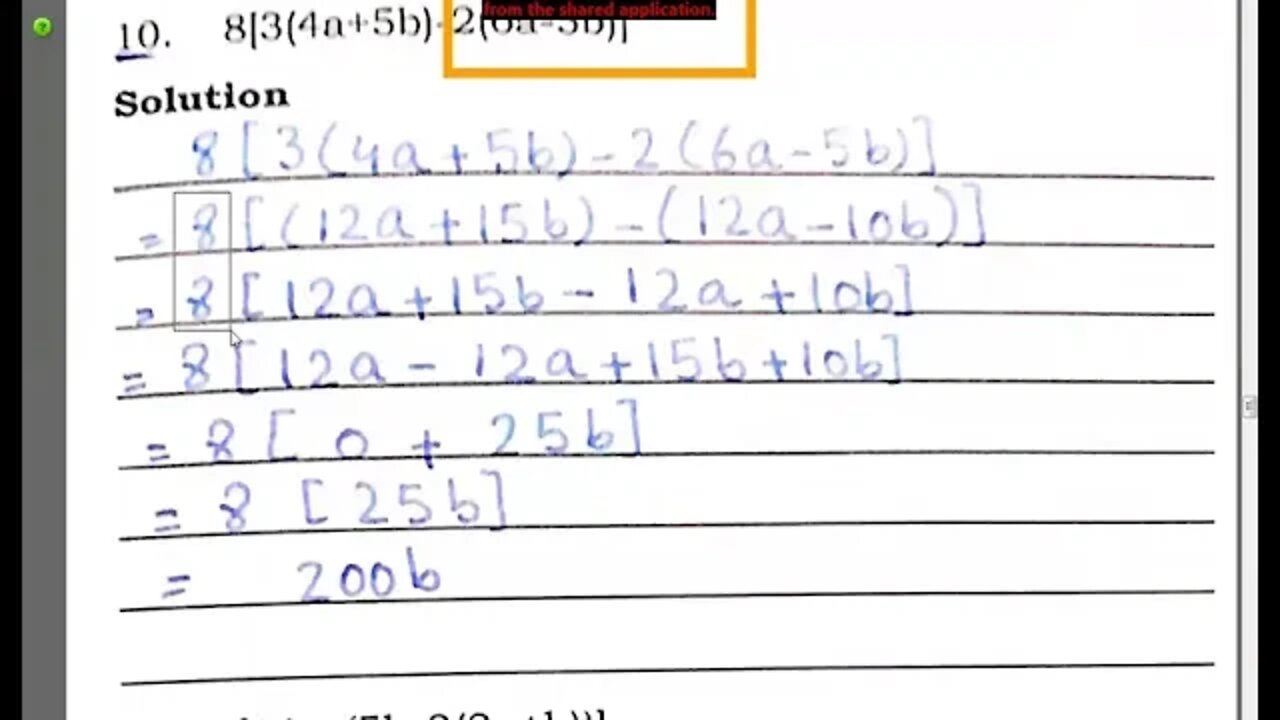 from the shared application.
10. 8[3(4a+5b)-2(6a-5b)]
Solution
8[3(4a+5b)-2(6a-5b)]
= 8[(12a+15b)-(12a-10b)]
= 8[12a+15b-12a+10b]
= 8[12a-12a+15b+10b]
= 8[0+25b]
= 8[25b]
= 200b